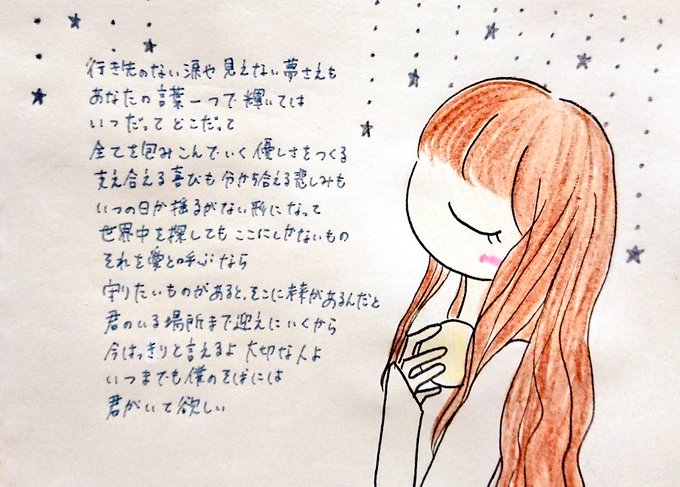 行き先のない涙や見えない夢さえも
あなたの言葉一つで輝いては
いつだって どこだって
全てを包みこんでいく優しさをつくる
支え合える喜びも分かち合える悲しみも
いつの日か揺るがない形になって
世界中を探してもここにしかないもの
それを愛と呼ぶなら
守りたいものがあると、そこに未来があるんだと
君のいる場所まで迎えにいくから
今はっきりと言えるよ 大切な人よ
いつまでも僕のそばには
君がいて欲しい